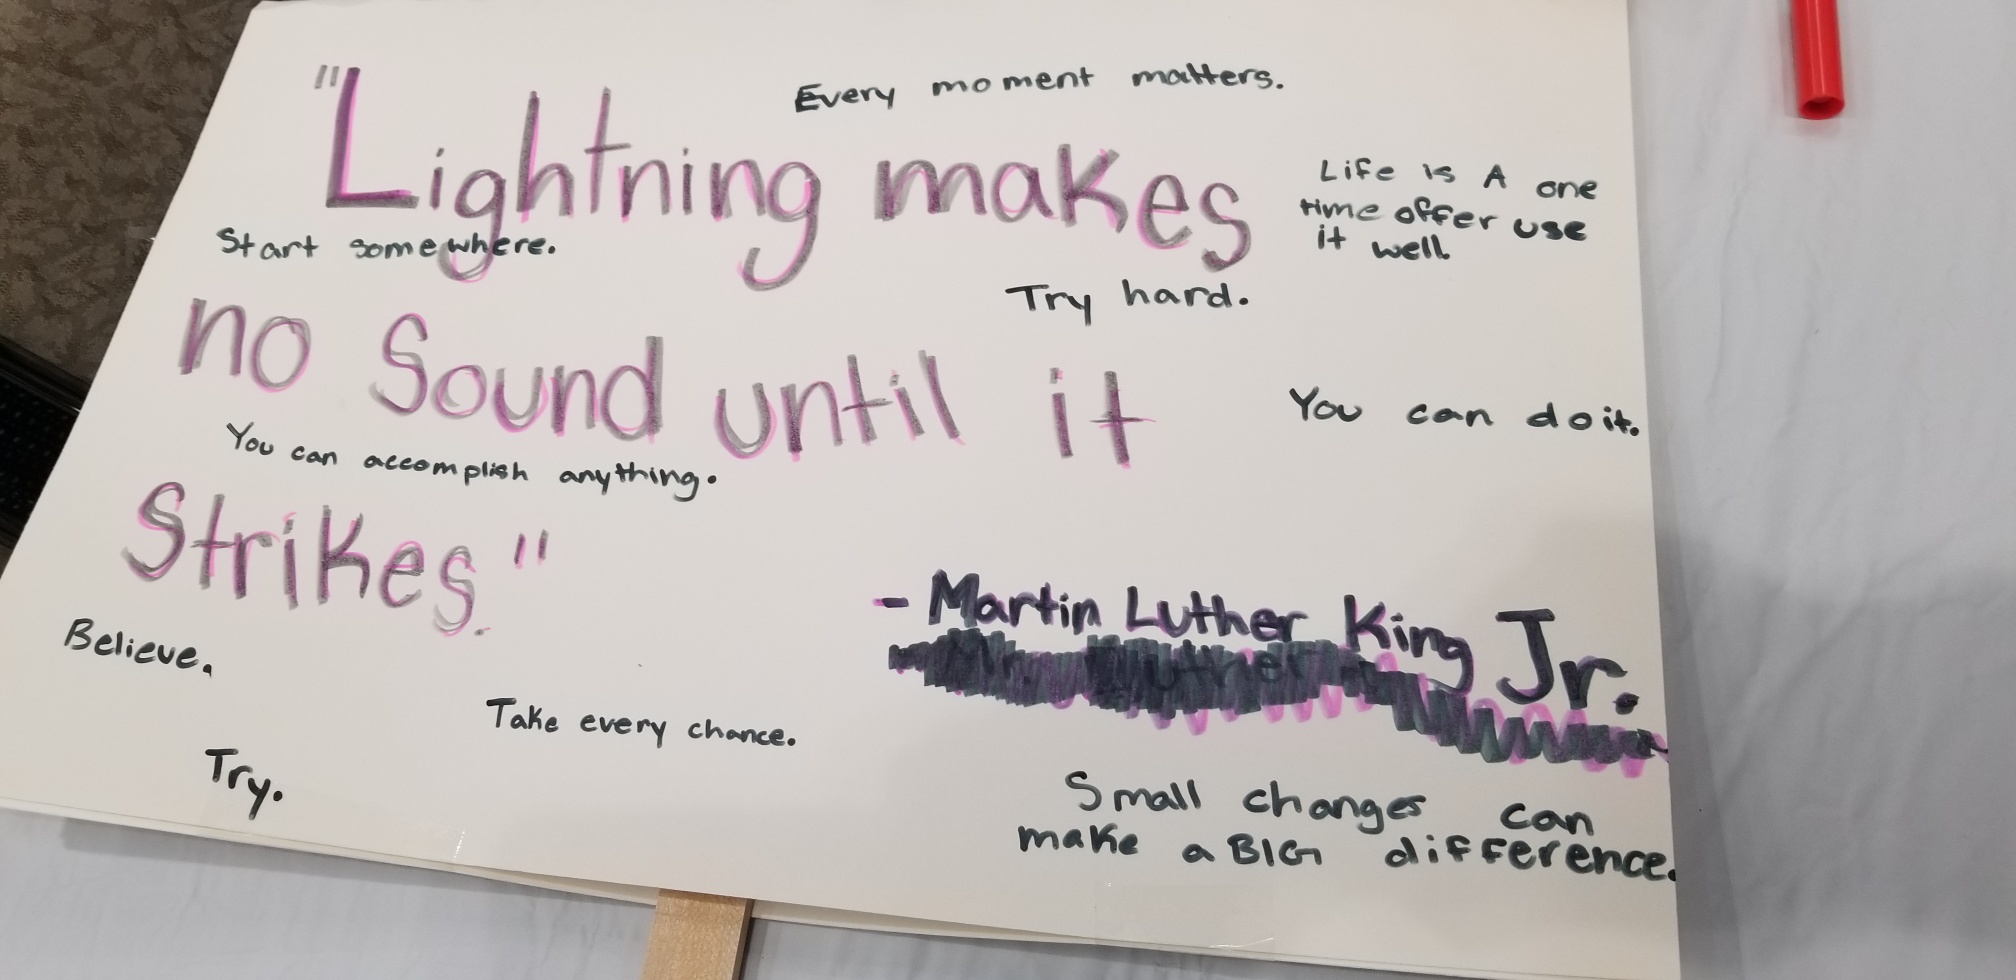 Every moment matters.
"Lightning makes
Life is A one
time offer use
it well.
Start somewhere.
Try hard.
no Sound until it
You can do it.
You can accomplish anything.
Strikes."
- Martin Luther King Jr.
Believe.
Take every chance.
Try.
Small changes can
make a BIG difference.